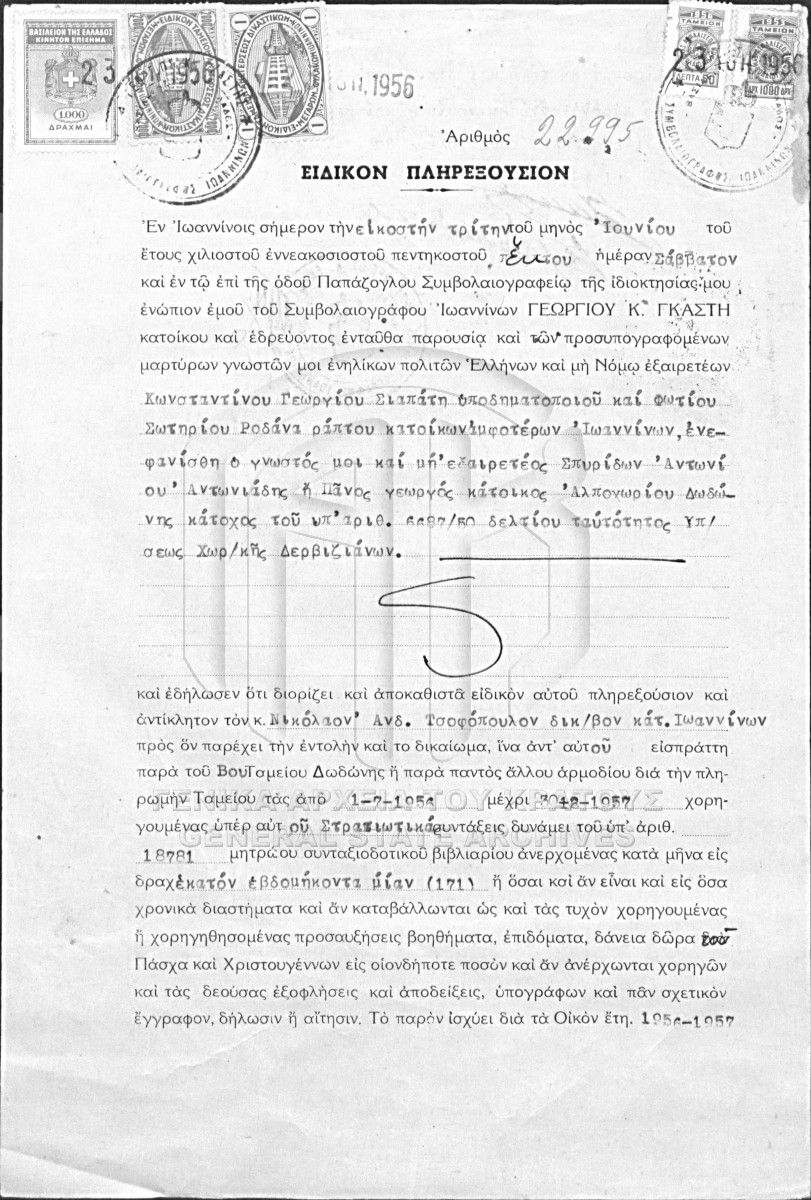 ΒΑΣΙΛΕΙΟΝ ΤΗΣ ΕΛΛΑΔΟΣ
ΚΙΝΗΤΟΝ ΕΠΙΣΗΜΑ
1.000
ΔΡΑΧΜΑΙ
23 ΙΟΥΝ. 1956
ΙΟΥΝ. 1956
23 ΙΟΥΝ. 1956
1956
ΤΑΜΕΙΟΝ
ΛΕΠΤΑ 90
1953
ΤΑΜΕΙΟΝ
ΔΡΧ 1000 ΔΡΧ
ΙΩΑΝΝΙΝΩΝ
ΣΥΜΒΟΛΑΙΟΓΡΑΦΗΣ ΙΩΑΝΝΙΝ
Ἀριθμὸς 22.995
ΕΙΔΙΚΟΝ ΠΛΗΡΕΞΟΥΣΙΟΝ
Ἐν Ἰωαννίνοις σήμερον τὴν εἰκοστήν τρίτην τοῦ μηνὸς Ἰουνίου τοῦ
ἔτους χιλιοστοῦ ἐννεακοσιοστοῦ πεντηκοστοῦ ἕκτου ἡμέραν Σάββατον
καὶ ἐν τῷ ἐπὶ τῆς ὁδοῦ Παπάζογλου Συμβολαιογραφείῳ τῆς ἰδιοκτησίας μου
ἐνώπιον ἐμοῦ τοῦ Συμβολαιογράφου Ἰωαννίνων ΓΕΩΡΓΙΟΥ Κ. ΓΚΑΣΤΗ
κατοίκου καὶ ἑδρεύοντος ἐνταῦθα παρουσίᾳ καὶ τῶν προσυπογραφομένων
μαρτύρων γνωστῶν μοι ἐνηλίκων πολιτῶν Ἑλλήνων καὶ μὴ Νόμῳ ἐξαιρετέων
Κωνσταντίνου Γεωργίου Σιαπάτη ὑποδηματοποιοῦ καί Φωτίου
Σωτηρίου Ροδάνα ράπτου κατοίκων ἀμφοτέρων Ἰωαννίνων, ἐνε-
φανίσθη ὁ γνωστός μοι καί μή ἐξαιρετέος Σπυρίδων Ἀντωνί
ου Ἀντωνιάδης ἤ Πᾶνος γεωργός κάτοικος Ἀλποχωρίου Δωδώ-
νης κάτοχος τοῦ ὑπ' ἀριθ. 6687/50 δελτίου ταὐτότητος Υπ/
σεως Χωρ/κῆς Δερβιζιάνων.
καὶ ἐδήλωσεν ὅτι διορίζει καὶ ἀποκαθιστᾶ εἰδικὸν αὐτοῦ πληρεξούσιον καὶ
ἀντίκλητον τὸν κ. Νικόλαον Ανδ. Τσοφόπουλον δικ/βον κάτ. Ιωαννίνων
πρὸς ὃν παρέχει τὴν ἐντολὴν καὶ το δικαίωμα, ἵνα ἀντ' αὐτοῦ εἰσπράττῃ
παρὰ τοῦ Βου Ταμείου Δωδώνης ἢ παρὰ παντὸς ἄλλου ἁρμοδίου διὰ τὴν πλη-
ρωμὴν Ταμείου τὰς ἀπὸ 1-7-1956 μέχρι 30-12-1957 χορη-
ΓΕΝΙΚΑ ΑΡΧΕΙΑ ΤΟΥ ΚΡΑΤΟΥΣ
γουμένας ὑπὲρ αὐτ οῦ Στρατιωτικάς συντάξεις δυνάμει τοῦ ὑπ' ἀριθ.
GENERAL STATE ARCHIVES
18781 μητρώου συνταξιοδοτικοῦ βιβλιαρίου ἀνερχομένας κατὰ μῆνα εἰς
δραχ ἑκατόν ἑβδομήκοντα μίαν (171) ἢ ὅσαι καὶ ἂν εἶναι καὶ εἰς ὅσα
χρονικὰ διαστήματα καὶ ἂν καταβάλλωνται ὡς καὶ τὰς τυχὸν χορηγουμένας
ἢ χορηγηθησομένας προσαυξήσεις βοηθήματα, ἐπιδόματα, δάνεια δῶρα τοῦ
Πάσχα καὶ Χριστουγέννων εἰς οἱονδήποτε ποσὸν καὶ ἂν ἀνέρχωνται χορηγῶν
καὶ τὰς δεούσας ἐξοφλήσεις καὶ ἀποδείξεις, ὑπογράφων καὶ πᾶν σχετικὸν
ἔγγραφον, δήλωσιν ἢ αἴτησιν. Τὸ παρὸν ἰσχύει διὰ τὰ Οἰκον ἔτη. 1956-1957